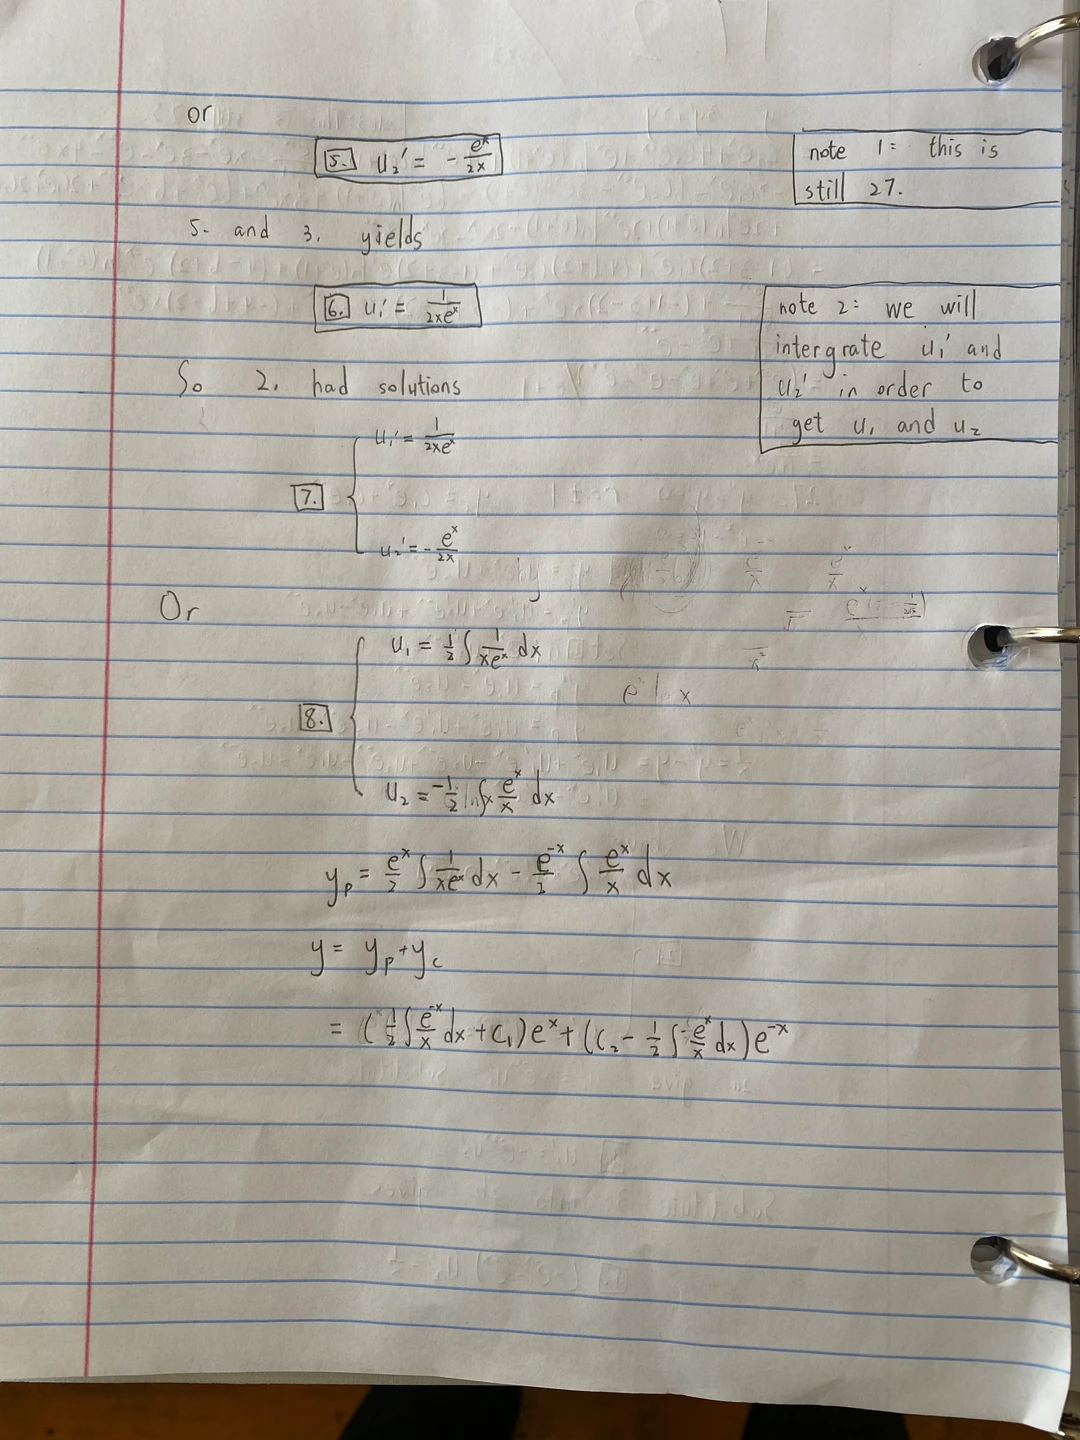 or
5. u₂' = - eˣ/2x
note 1: this is
still 27.
5. and 3. yields
6. u₁' = 1/2xeˣ
note 2: we will
intergrate u₁' and
u₂' in order to
get u₁ and u₂
So 2. had solutions
7.
u₁' = 1/2xeˣ
u₂' = - eˣ/2x
Or
8.
u₁ = 1/2 ∫ 1/xeˣ dx
u₂ = -1/2 ∫ eˣ/x dx
yₚ = eˣ/2 ∫ 1/xeˣ dx - e⁻ˣ/2 ∫ eˣ/x dx
y = yₚ + y꜀
= (1/2 ∫ e⁻ˣ/x dx + C₁)eˣ + (C₂ - 1/2 ∫ eˣ/x dx)e⁻ˣ